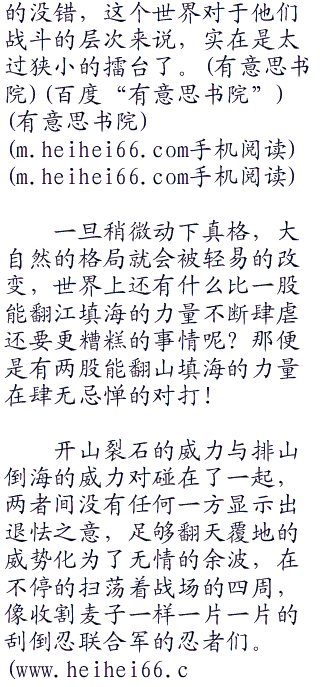 的没错，这个世界对于他们
战斗的层次来说，实在是太
过狭小的擂台了。(有意思书
院)(百度“有意思书院”)
(有意思书院)
(m.heihei66.com手机阅读)
(m.heihei66.com手机阅读)
一旦稍微动下真格，大
自然的格局就会被轻易的改
变，世界上还有什么比一股
能翻江填海的力量不断肆虐
还要更糟糕的事情呢？那便
是有两股能翻山填海的力量
在肆无忌惮的对打！
开山裂石的威力与排山
倒海的威力对碰在了一起，
两者间没有任何一方显示出
退怯之意，足够翻天覆地的
威势化为了无情的余波，在
不停的扫荡着战场的四周，
像收割麦子一样一片一片的
刮倒忍联合军的忍者们。
(www.heihei66.c